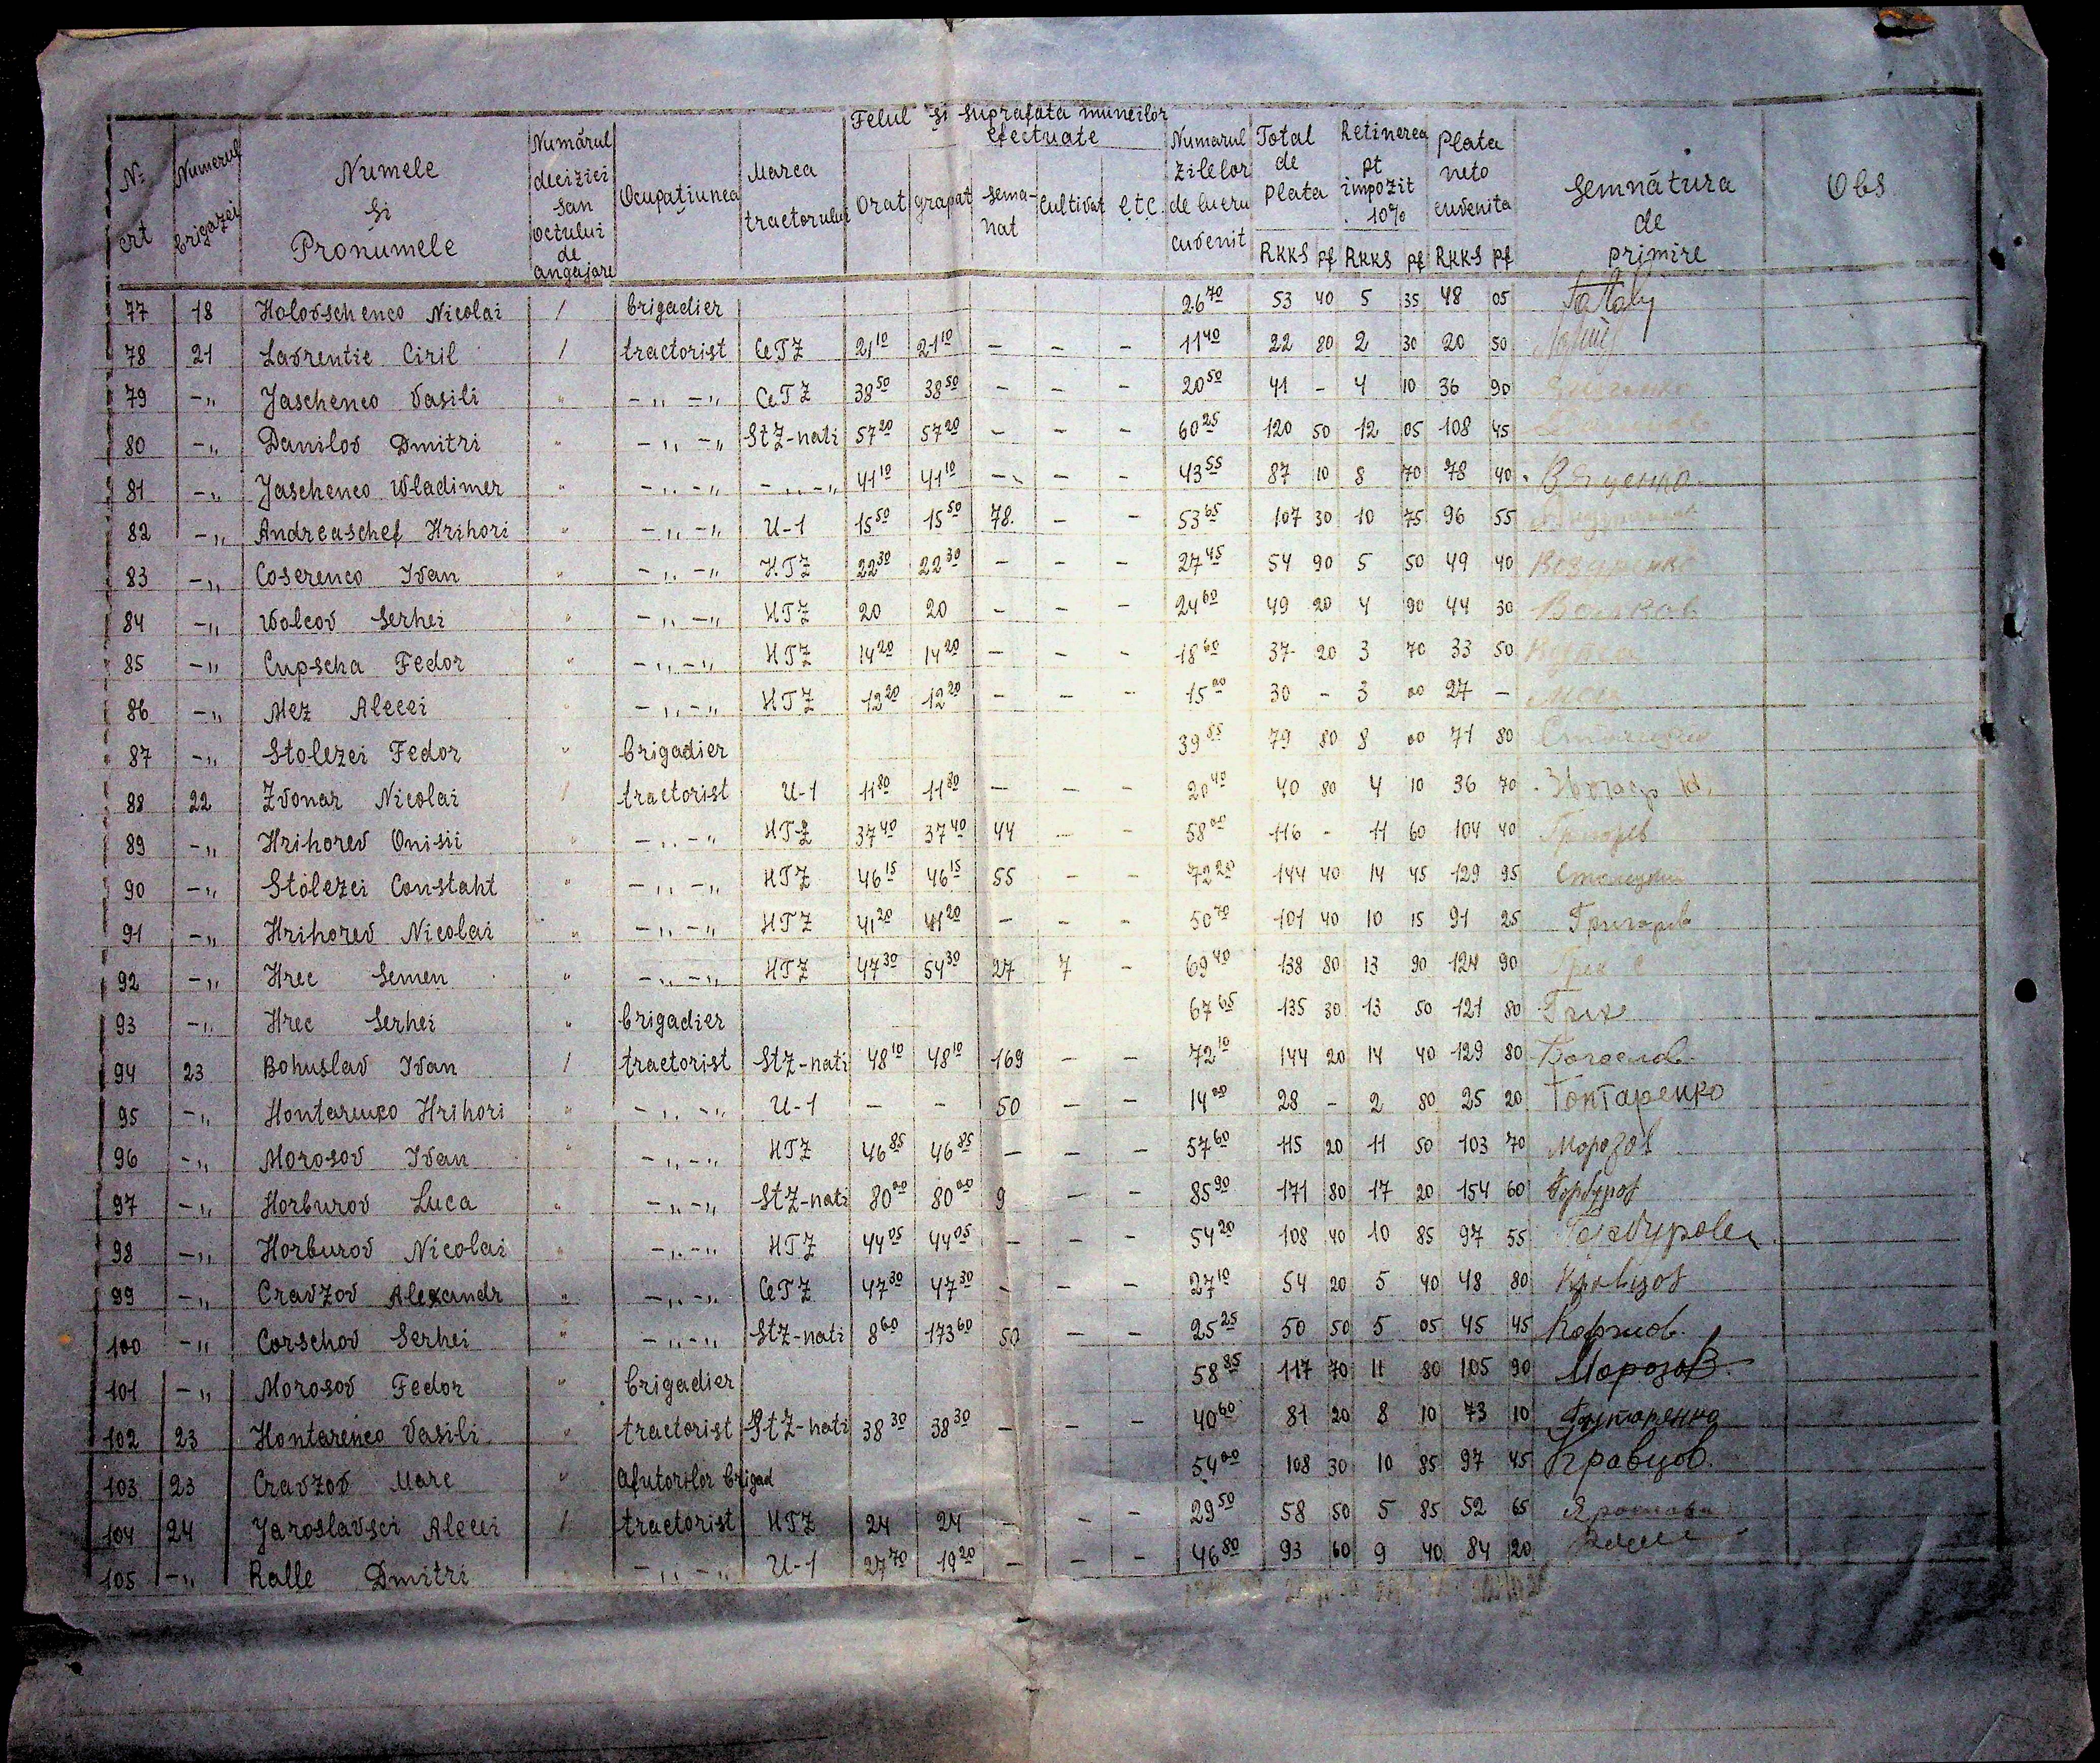 Felul și suprafața muncilor efectuate
Nº crt | Numerul brigazei | Numele și Pronumele | Numărul deciziei sau octului de angajare | Ocupațiunea | Marca tractorului | Orat | grapat | semanat | Cultivat | etc. | Numarul zilelor de lucru cuvenit | Total de plata RKKS pf | Retinerea pt impozit 10% RKKS pf | Plata neto cuvenita RKKS pf | Semnătura de primire | Obs
77 18 Holovschenco Nicolai / brigadier 26 70 53 40 5 35 48 05
78 21 Lavrentie Ciril / tractorist CeTZ 21 10 21 10 - - - 11 40 22 80 2 30 20 50
79 -„ Jaschenco Vasili „ -„ -„ CeTZ 38 50 38 50 - - - 20 50 41 - 4 10 36 90
80 -„ Danilov Dmitri „ -„ -„ StZ-nati 57 20 57 20 - - - 60 25 120 50 12 05 108 45
81 -„ Jaschenco Wladimer „ -„ -„ -„ -„ 41 10 41 10 - - - 43 55 87 10 8 70 78 40 В Яценко
82 -„ Andreaschef Hrihori „ -„ -„ U-1 15 50 15 50 78. - - 53 65 107 30 10 75 96 55
83 -„ Coserenco Ivan „ -„ -„ HTZ 22 30 22 30 - - - 27 45 54 90 5 50 49 40
84 -„ Volcov Serhei „ -„ -„ HTZ 20 20 - - - 24 60 49 20 4 90 44 30 Волков
85 -„ Cupscha Fedor „ -„ -„ HTZ 14 20 14 20 - - - 18 60 37 20 3 70 33 50
86 -„ Mez Alecei „ -„ -„ HTZ 12 20 12 20 - - - 15 00 30 - 3 00 27 -
87 -„ Stolezei Fedor „ brigadier 39 85 79 80 8 00 71 80
88 22 Zvonar Nicolai / tractorist U-1 11 80 11 80 - - - 20 40 40 80 4 10 36 70
89 -„ Hrihorev Onisii „ -„ -„ HTZ 37 40 37 40 44 - - 58 00 116 - 11 60 104 40
90 -„ Stolezei Constaht „ -„ -„ HTZ 46 15 46 15 55 - - 72 20 144 40 14 45 129 95
91 -„ Hrihorev Nicolai „ -„ -„ HTZ 41 20 41 20 - - - 50 70 101 40 10 15 91 25
92 -„ Hrec Semen „ -„ -„ HTZ 47 30 54 30 27 7 - 69 40 138 80 13 90 124 90 Грек С
93 -„ Hrec Serhei „ brigadier 67 65 135 30 13 50 121 80
94 23 Bohuslav Ivan / tractorist StZ-nati 48 10 48 10 169 - - 72 10 144 20 14 40 129 80
95 -„ Hontarenko Hrihori „ -„ -„ U-1 - - 50 - - 14 00 28 - 2 80 25 20 Гонтаренко
96 -„ Morosov Ivan „ -„ -„ HTZ 46 85 46 85 - - - 57 60 115 20 11 50 103 70 Морозов
97 -„ Horburov Luca „ -„ -„ StZ-nati 80 00 80 00 9 - - 85 90 171 80 17 20 154 60 Горбуров
98 -„ Horburov Nicolai „ -„ -„ HTZ 44 05 44 05 - - - 54 20 108 40 10 85 97 55
99 -„ Cravzov Alexandr „ -„ -„ CeTZ 47 30 47 30 - - - 27 10 54 20 5 40 48 80 Кравцов
100 -„ Corschov Serhei „ -„ -„ StZ-nati 8 60 173 60 50 - - 25 25 50 50 5 05 45 45 Коржов.
101 -„ Morosov Fedor „ brigadier 58 85 117 70 11 80 105 90 Морозов
102 23 Hontarenco Vasili „ tractorist StZ-nati 38 30 38 30 - - - 40 60 81 20 8 10 73 10 Гонтаренко
103 23 Cravzov Marc „ Afutorilor brigad 54 00 108 30 10 85 97 45 Кравцов.
104 24 Jaroslavsci Alecei / tractorist HTZ 24 24 - - - 29 50 58 50 5 85 52 65
105 -„ Ralle Dmitri „ -„ -„ U-1 27 70 19 20 - - - 46 80 93 60 9 40 84 20